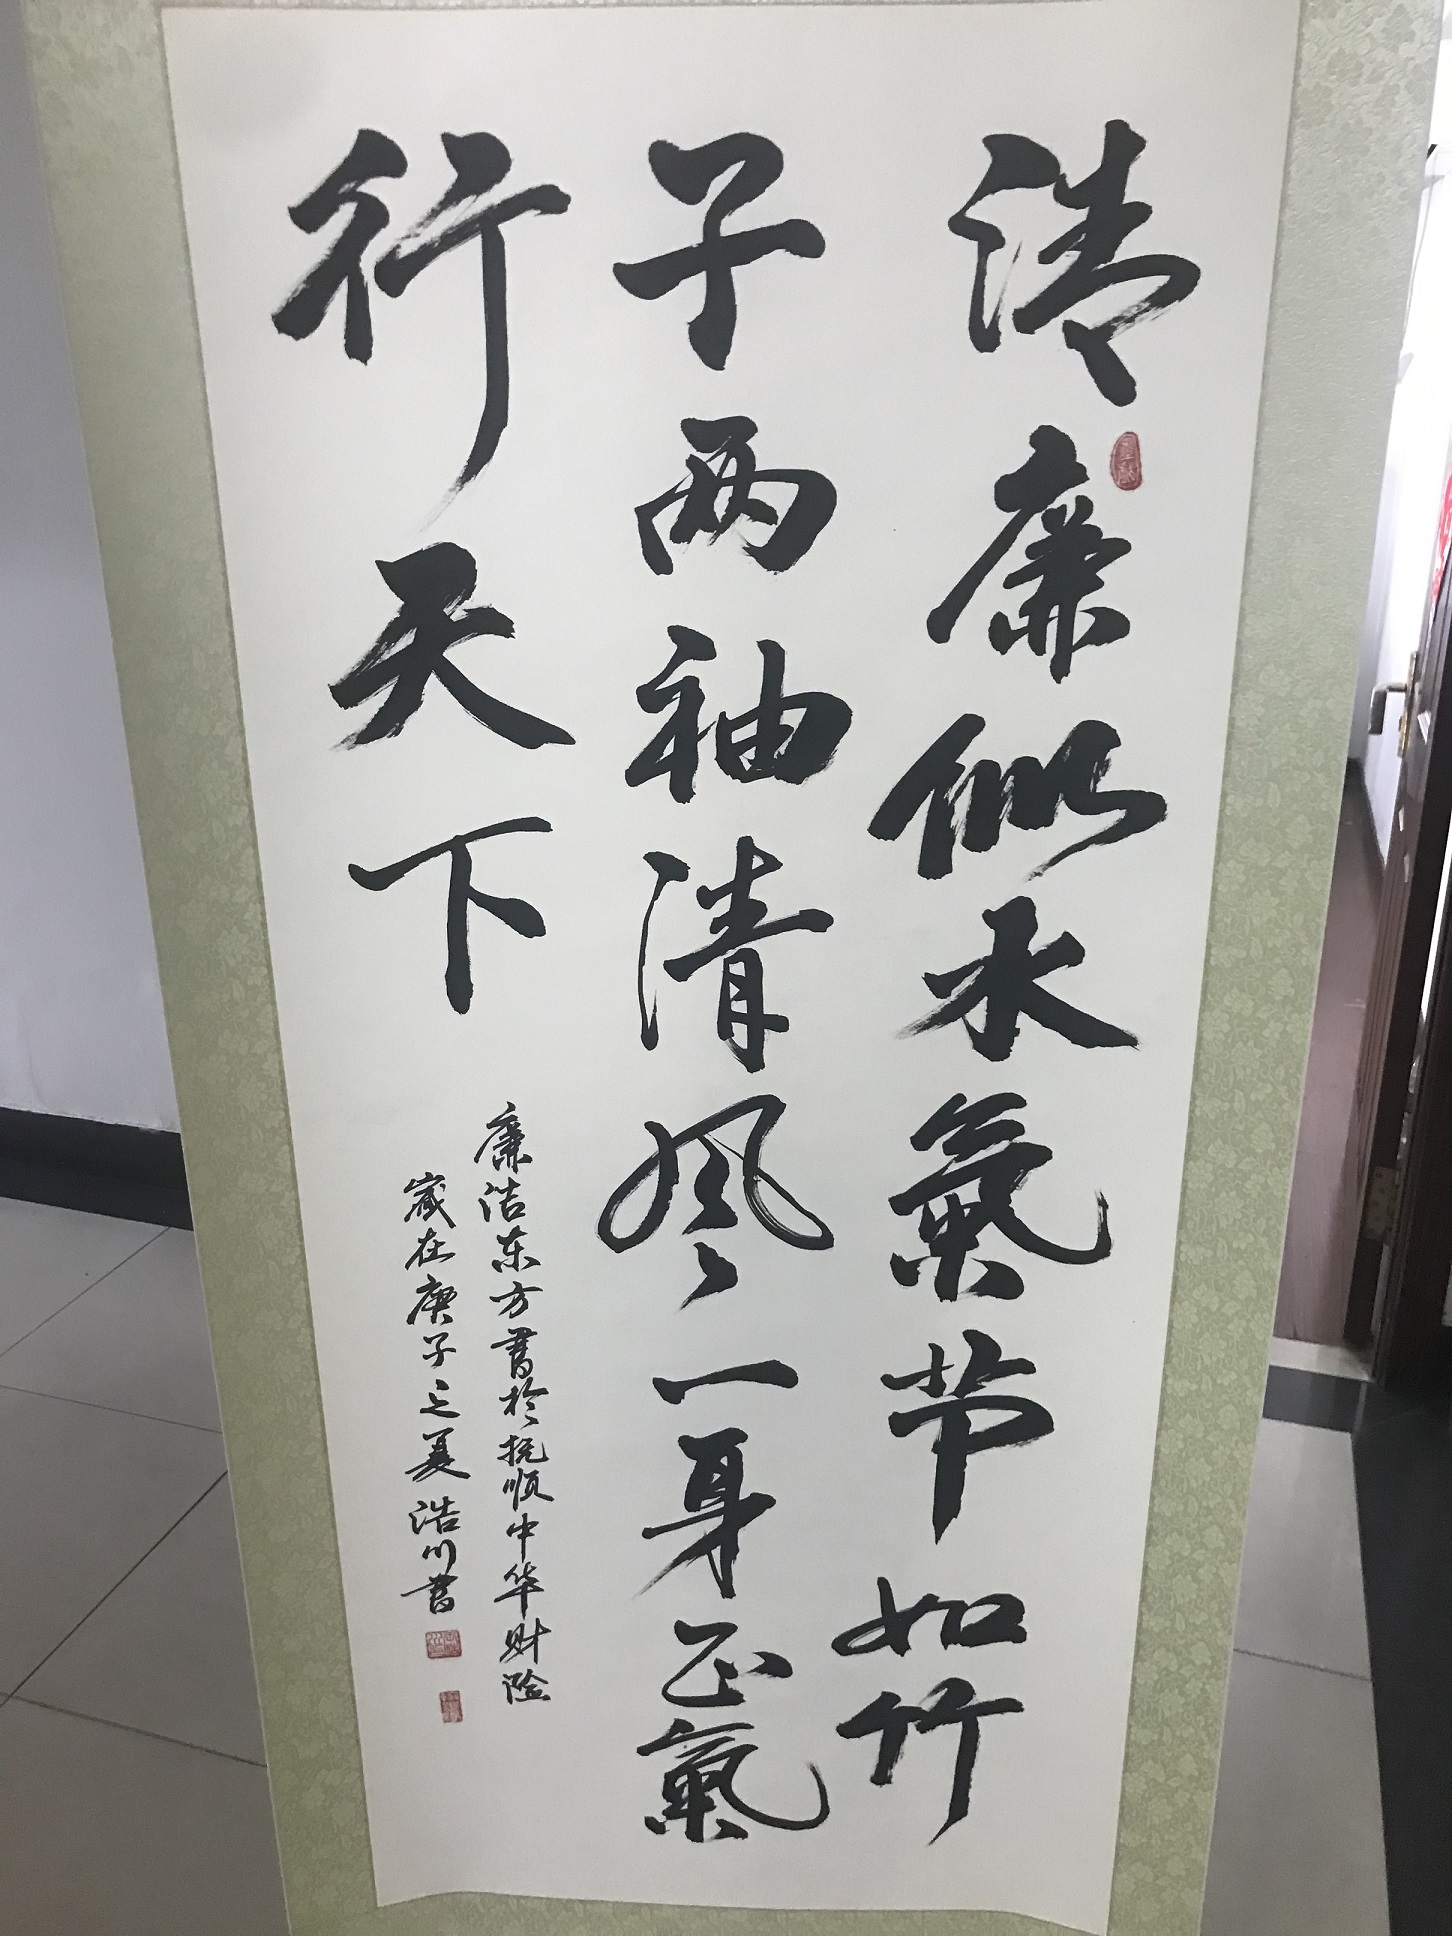 清廉似水氣节如竹
子两袖清风一身正氣
行天下
廉洁东方書於抚顺中华财险
歲在庚子之夏浩川書